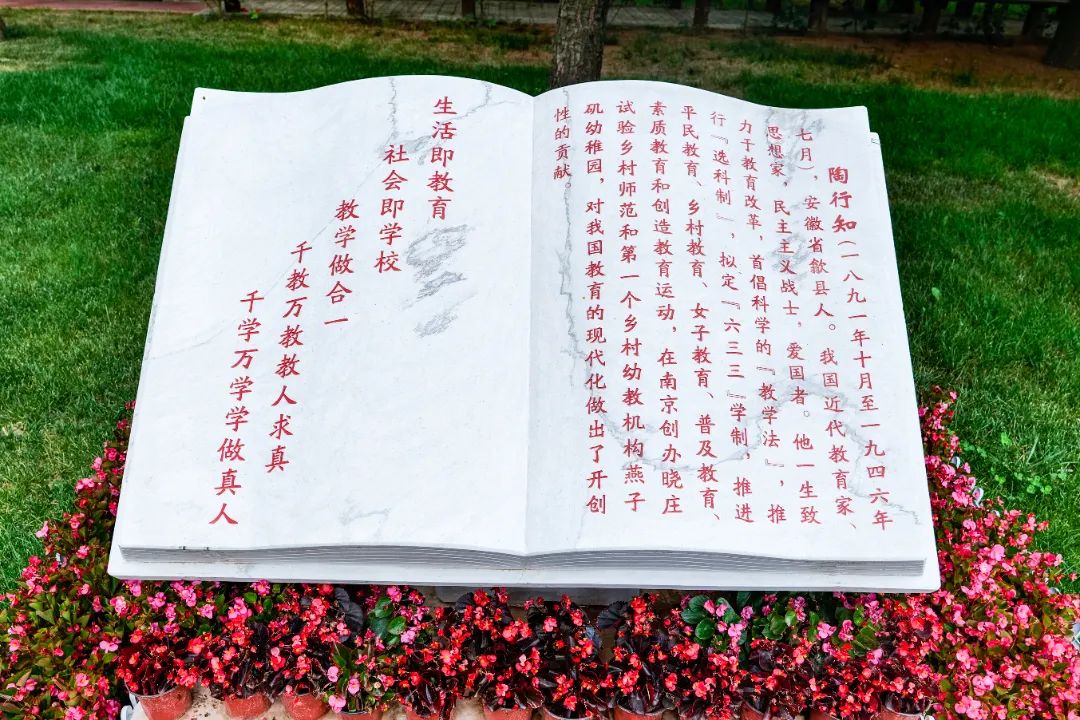 陶行知(一八九一年十月至一九四六年
七月)，安徽省歙县人。我国近代教育家、
思想家，民主主义战士，爱国者。他一生致
力于教育改革，首倡科学的『教学法』，推
行『选科制』，拟定『六三三』学制，推进
平民教育、乡村教育、女子教育、普及教育、
素质教育和创造教育运动，在南京创办晓庄
试验乡村师范和第一个乡村幼教机构燕子
矶幼稚园，对我国教育的现代化做出了开创
性的贡献。
生活即教育
社会即学校
教学做合一
千教万教教人求真
千学万学学做真人